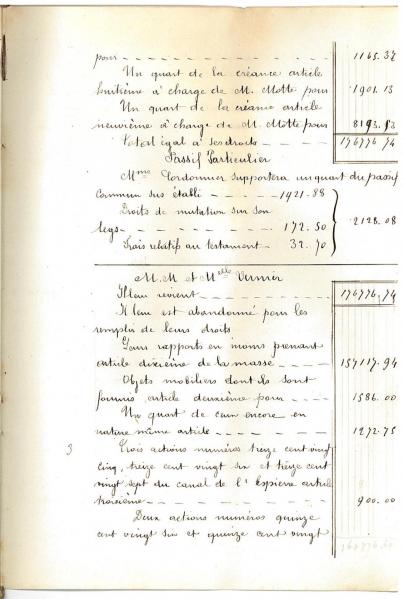 pour 1165.37
Un quart de la créance article
huitième à charge de M. Motte pour 1901.13
Un quart de la créance article
neuvième à charge de M. Motte pour 8193.53
Total égal à ses droits 176776 74
Passif Particulier
Mme Cordonnier supportera un quart du passif
commun sus établi 1921-88
Droits de mutation sur son 2128.08
legs 172.50
Frais relatifs au testament 32.70
M.M et Melle Vernier
Il leur revient 176776,74
Il leur est abandonné pour les
remplir de leurs droits
Leurs rapports en moins prenant
article dixième de la masse 157117.94
Objets mobiliers dont ils sont
fournis article deuxième pour 1586.00
Un quart de ceux encore en
nature même article 1272.75
3 Trois actions numéros treize cent vingt
cinq, treize cent vingt six et treize cent
vingt sept du canal de l'Espierre article
troisième 900.00
Deux actions numéros quinze
cent vingt six et quinze cent vingt